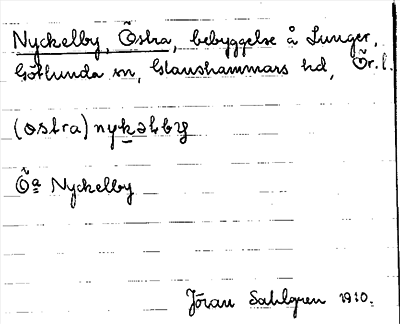 Nyckelby, Östra, bebyggelse å Lunger,
Götlunda sn, Glanshammars hd, Ör. l.
(ostra) nykəlby
Öa Nyckelby
Jöran Sahlgren 1910.